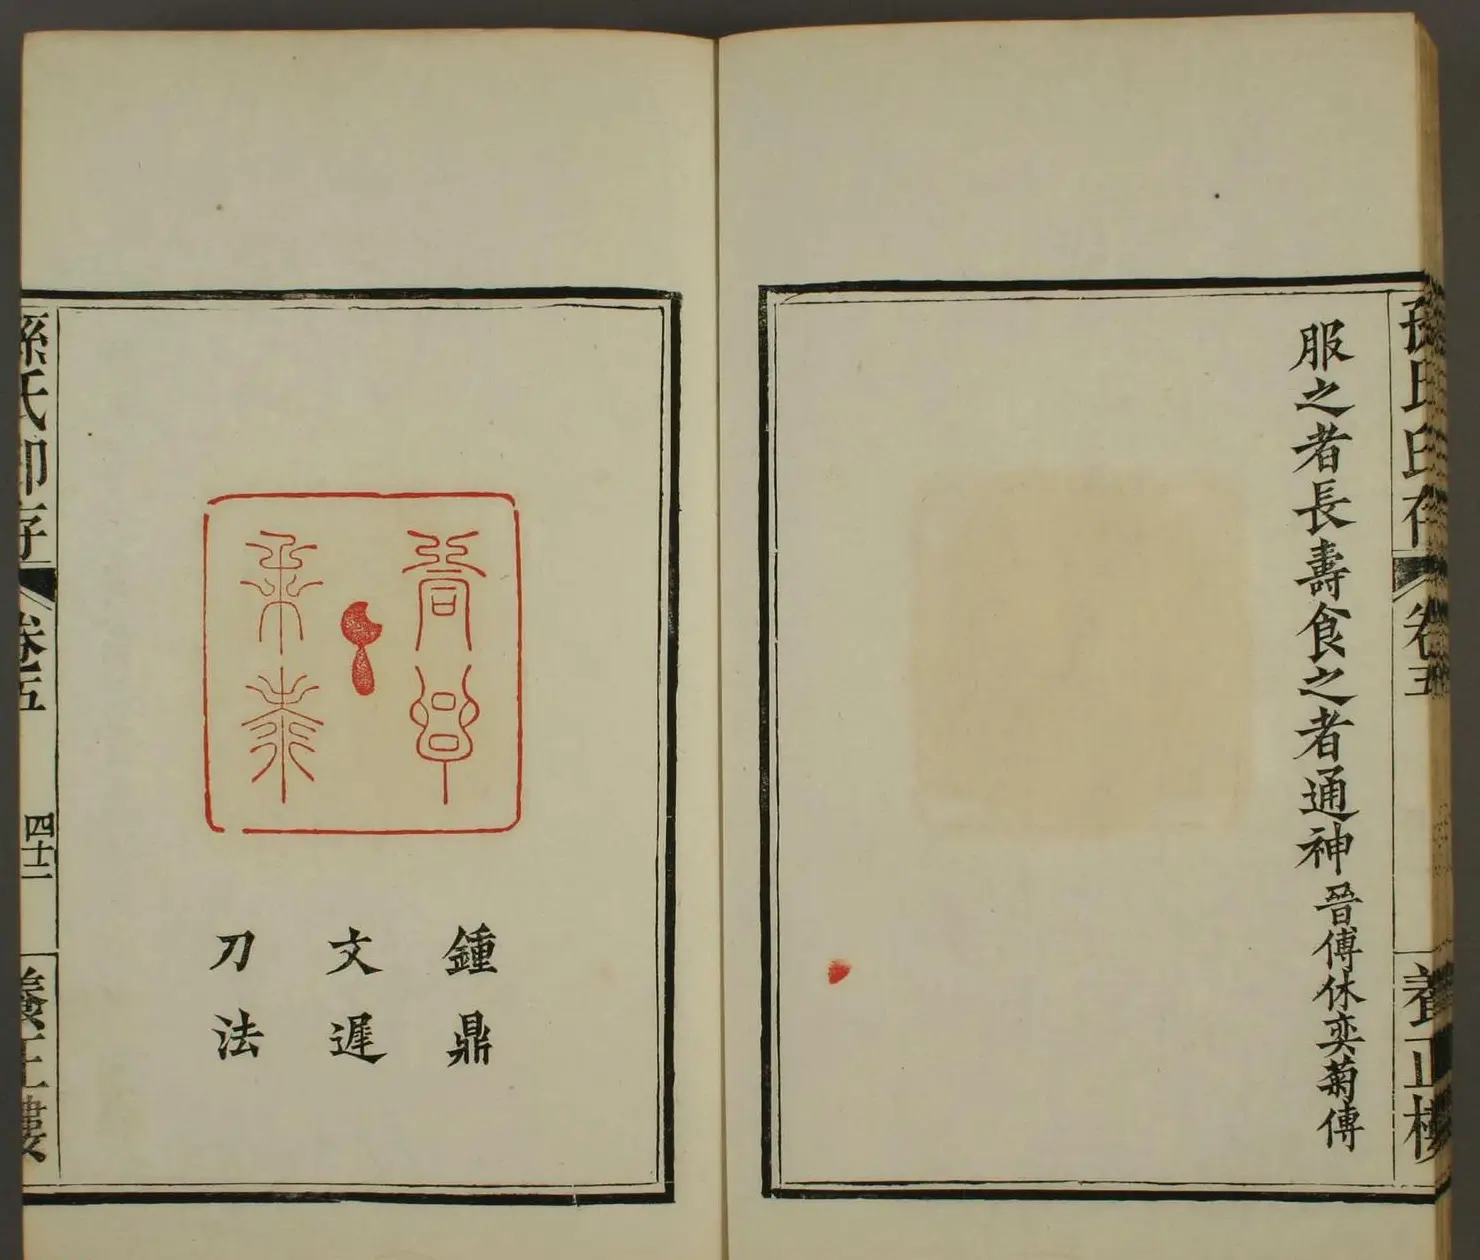 孫氏印存
卷五
養正樓
服之者長壽食之者通神 晉傅休奕菊傅
鍾鼎
文遲
刀法
孫氏印存
卷五
四十二
養正樓